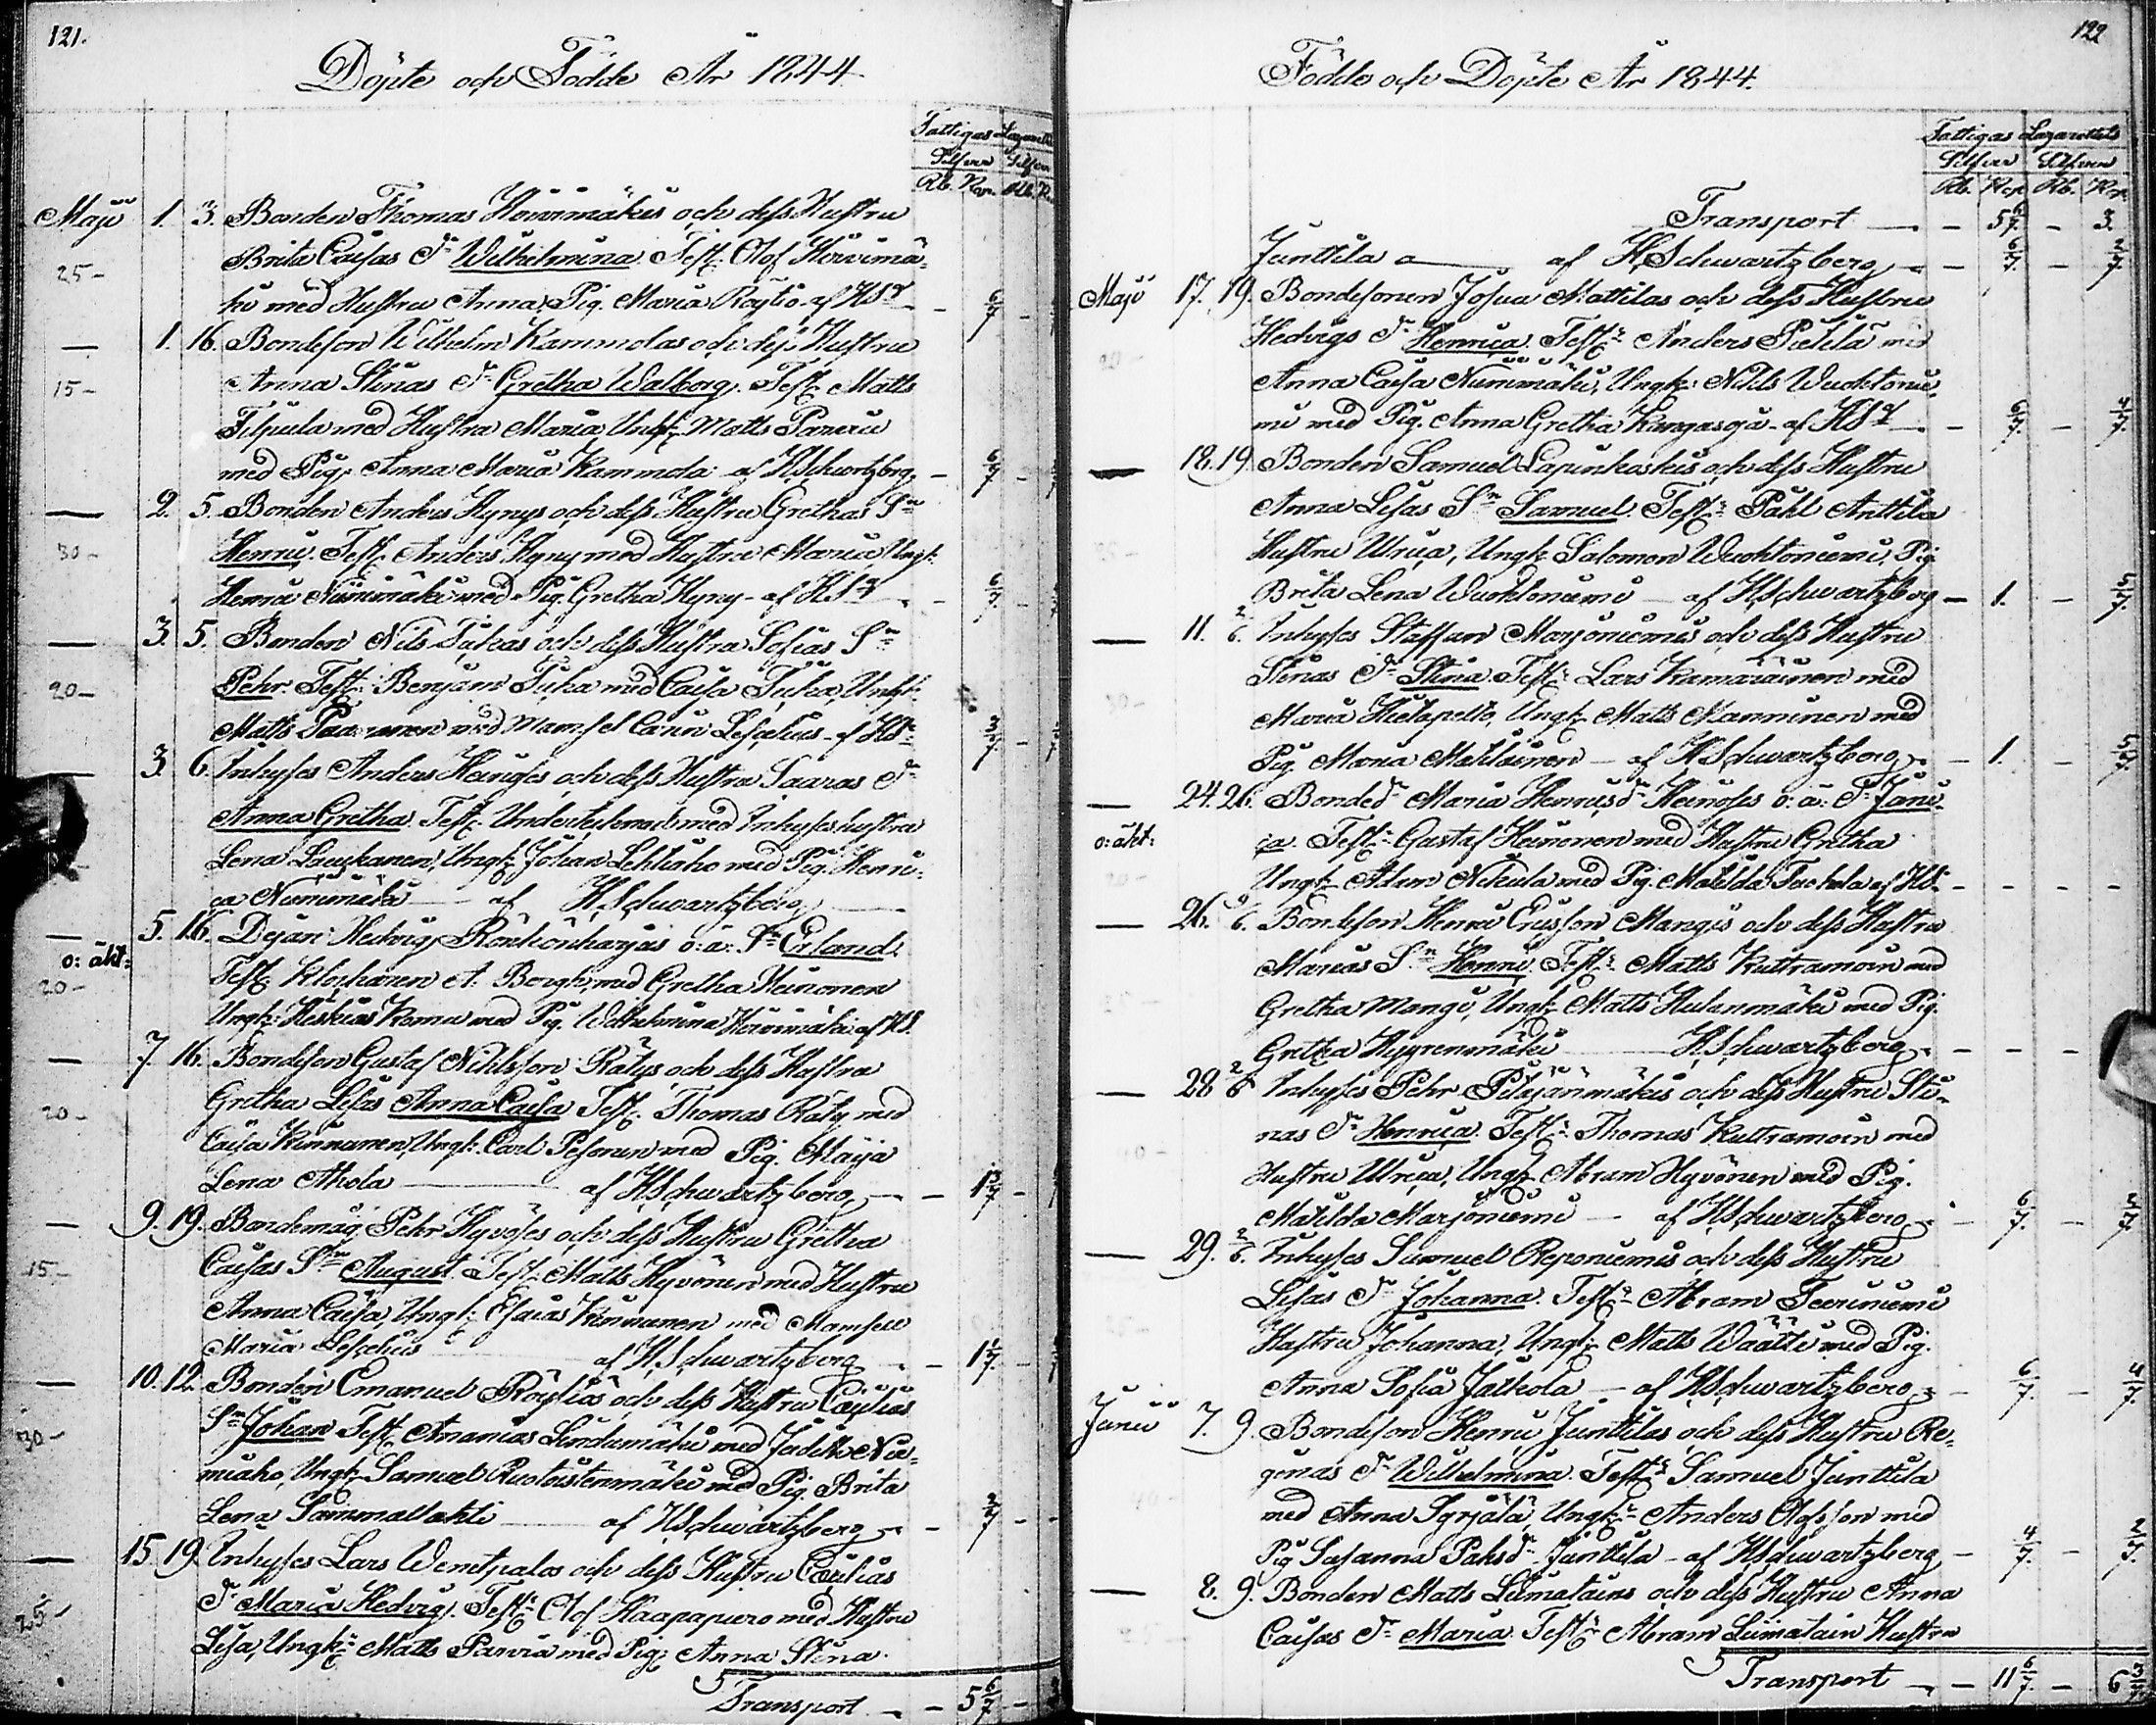 121.
Döpte och Födde År 1844
Fattigas Lazarett
Silfver Silfver
Rb. Kop. Rb. K
Maji 1. 3. Bonden Thomas Hirvimäkis och dess Hustru
Brita Caisas Dr Wilhelmina. Test. Olof Hirvimä-
25-
ki med Hustru Anna, Pig. Maria Röytiö af HSg - 6/7 -
— 1. 16. Bondeson Wilhelm Kammolas och dess Hustru
15- Anna Stinas Dr Gretha Walborg. Test. Matts
med Hustru Maria, Ungk. Matts
med Pig. Anna Maria Kammola af HSchwartzberg - 6/7 -
— 2. 5. Bonden Anders Hynys och dess Hustru Grethas Sn
30- Henric. Test. Anders Hyny med Hustru Maria, Ungk.
Henric Niinimäki med Pig. Gretha Hyny - af HSg - 6/7 -
— 3. 5. Bonden Nils Tuhas och dess Hustru Sofias Sn
20- Pehr. Test. Benjam Tuha med Caisa Tuha, Ungk.
Matts med Mamsel Carin Lescelius - af HSr 3/7 -
— 3. 6. Inhyses Anders och dess Hustru Saaras Dr
Anna Gretha. Test. med Inhyses hustru
Lena Laukkanen, Ungk. Johan Lehtiaho med Pig. Henri-
ca Niinimäki — af HSchwartzberg —
— 5. 16. Dejan Hedvig o: ä: Sn Erland.
o: äkt:
20- Test. Klockaren A. Bergh med Gretha Heinonen
Ungk. Heskias med Pig. Wilhelmina Hirvimäki af HS.
— 7. 16. Bondeson Gustaf Nihlsson Rätys och dess Hustru
20- Gretha Lisas Anna Caisa Test. Thomas Räty med
Caisa Kinnunen, Ungk. Carl Pesonen med Pig. Maija
Lena Ahola — af HSchwartzberg — - 1 3/7 -
— 9. 19. Bondemåg Pehr Hyvöses och dess Hustru Gretha
15- Caisas Sn August. Test. Matts Hyvönen med Hustru
Anna Caisa, Ungk. Esaias Kinnunen med Mamsell
Maria Lescelius af HSchwartzberg - 1 1/7 -
— 10. 12. Bonden Emanuel Röytiös och dess Hustru Cæcilias
30- Sn Johan Test. Ananias Lindumäki med Judith Nie-
miaho, Ungk. Samuel Ruotoistenmäki med Pig. Brita
Lena Sammallahti — af HSchwartzberg — - 2/7 -
— 15. 19. Inhyses Lars Wenetpalos och dess Hustru Cæcilias
25- Dr Maria Hedvig. Test. Olof Haapapuro med Hustru
Lisa, Ungk. Matts Parvia med Pig. Anna Stina.
Transport — - 5 6/7 -
122
Födde och Döpte År 1844.
Fattigas Lazarettets
Silfver Silfver
Rb. Kop. Rb. Kop.
Transport — - 5 6/7 - 3.
Junttila — af HSchwartzberg - - 6/7 - 2/7
Maji 17. 19. Bondesonen Josua Mattilas och dess Hustru
Hedvigs Dr Henrica. Test. Anders Pietilä med
Anna Caisa Niinimäki, Ungk. Nihls Wuohtonie-
mi med Pig. Anna Gretha Kangasoja - af HSg - 6/7 -
— 18. 19. Bonden Samuel Lapinkoskis och dess Hustru
Anna Lisas Sn Samuel. Test. Påhl Anttila
Hustru Ulrica, Ungk. Salomon Wuohtoniemi, Pig.
Brita Lena Wuohtoniemi — af HSchwartzberg - 1. -
— 11. 2/6. Inhyses Staffan Marjoniemis och dess Hustru
Stinas Dr Stina. Test. Lars Kamäräinen med
Maria Hietapelto, Ungk. Matts Manninen med
Pig. Maria — af HSchwartzberg - 1. -
— 24. 26. Bonded. Maria Henricsdr Heinoses o: ä: Dr Jani-
o: äkt: ca. Test. Gustaf Heinonen med Hustru Gretha
Ungk. Adam Nikula med Pig. Matilda af HS. - - - -
— 26. 9/6. Bondeson Henric Ericsson Mangis och dess Hustru
Marias Sn Henric. Test. Matts Kultramoin med
Gretha Mangi, Ungk. Matts med Pig.
Gretha — HSchwartzberg - - - -
— 28 2/6 Inhyses Pehr Pitäjänmäkis och dess Hustru Sti-
nas Dr Henrica. Test. Thomas Kultramoin med
Hustru Ulrica, Ungk. Abram Hyvönen med Pig.
Matilda Marjoniemi — af HSchwartzberg - 6/7. -
— 29. 2/6. Inhyses Samuel Reponiemis och dess Hustru
Lisas Dr Johanna. Test. Abram Teeriniemi
Hustru Johanna, Ungk. Matts Wäätti med Pig.
Anna Sofia Jalkola — af HSchwartzberg - 6/7. - 4/7.
Junii 7. 9. Bondeson Henric Junttilas och dess Hustru Re-
ginas Dr Wilhelmina. Test. Samuel Junttila
med Anna Syrjälä, Ungk. Anders Olofsson med
Pig Susanna Påhlsdr Junttila - af HSchwartzberg - 4/7. - 2/7.
— 8. 9. Bonden Matts Liimatains och dess Hustru Anna
Caisas Dr Maria. Test. Abram Liimatain Hustru
Transport — - 11 6/7. - 6